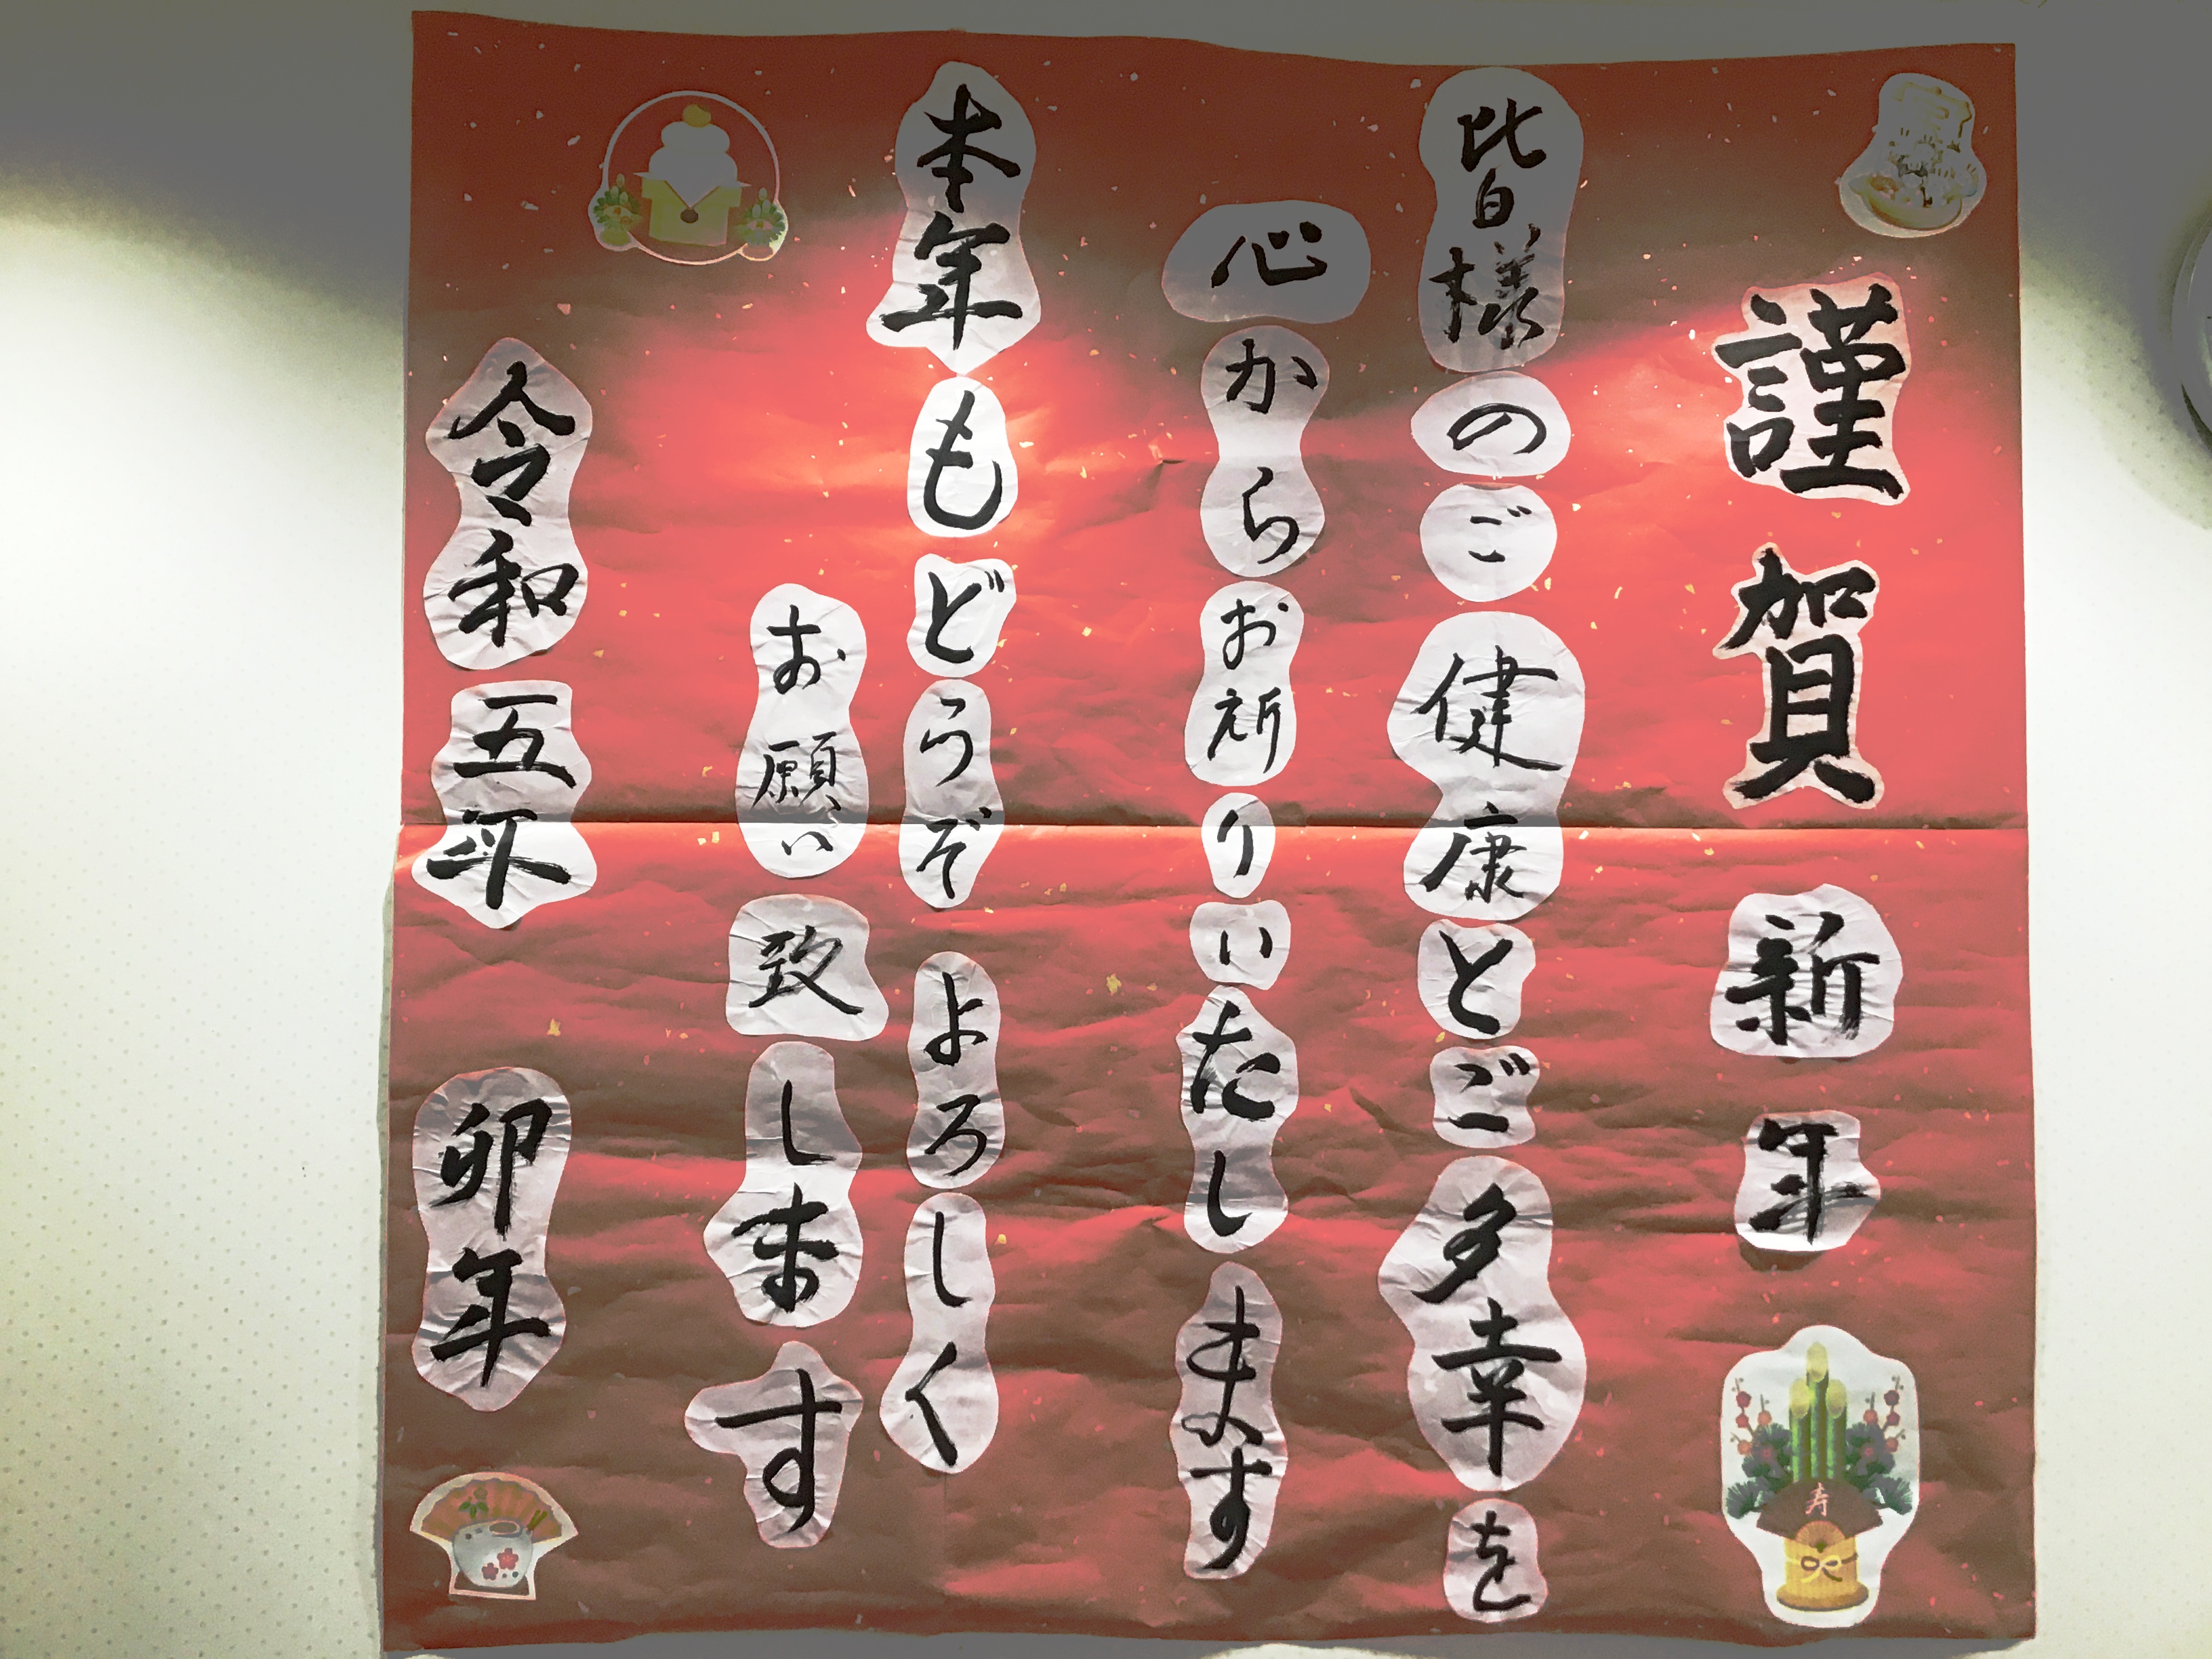 謹賀新年
皆様のご健康とご多幸を
心からお祈りいたします
本年もどうぞよろしく
お願い致します
令和五年 卯年
寿